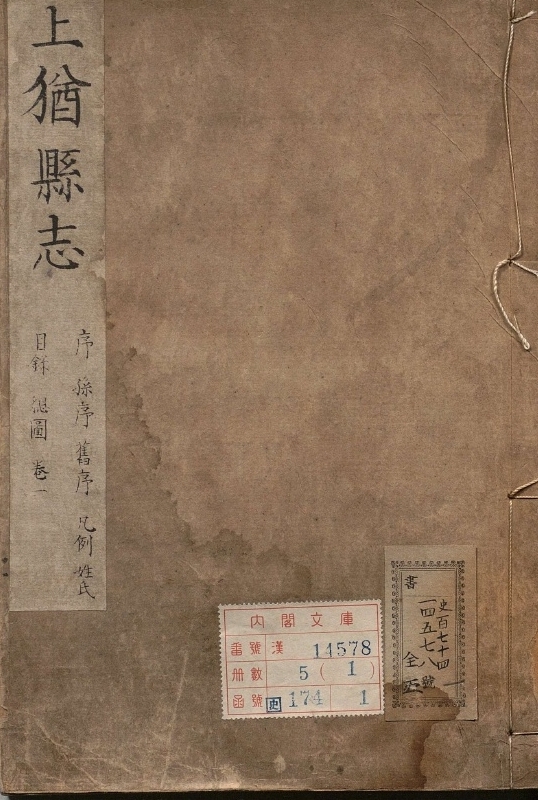 上猶縣志
序 孫序 舊序 凡例 姓氏
目錄 總圖 卷一
內閣文庫
番號 漢 14578
冊數 5 (1)
函號 史 174 1
書
史百七十四
一四五七八號
全五